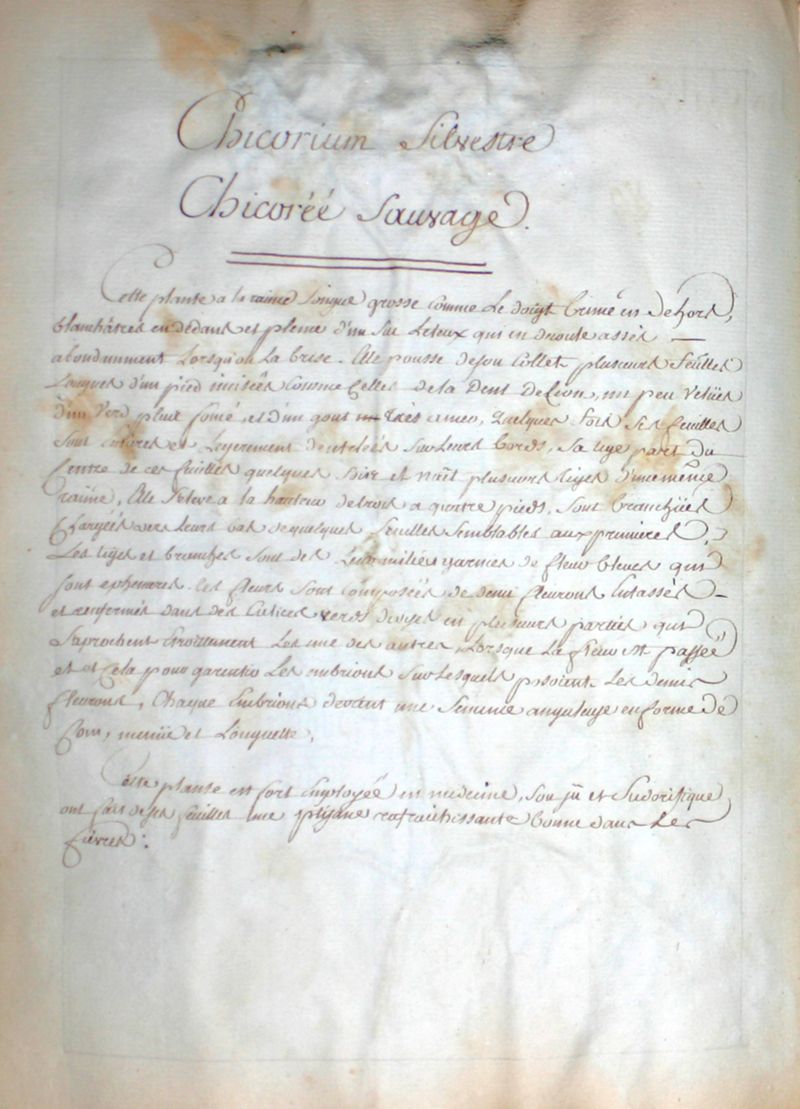 Chicorium Silvestre
Chicoréé Sauvage.
Cette plante a la racine Longue grosse comme Le doigt brune en dehors,
blanchâtres en dedans et pleine d'un Suc Leteux qui en decoule assés —
abondanment Lorsqu'on La brise. Elle pousse de son Collet plusieurs feuilles
Longues d'un pied incisées Comme Celles de la Dent De Lion, un peu Veluës
d'un Verd plus foncé, et d'un gout très amer, quelques fois Ses feuilles
Sont entieres et Legerement dentelées Sur Leurs bords, Sa tige part du
Centre de ces feuilles quelques fois et naît plusieurs tiges d'une même
racine, Elle S'éleve a la hauteur de trois a quatre pieds, Sont branchües
Chargées vers Leurs bas de quelques feuilles Semblables aux premieres,
Les tiges et branches sont des Leur milieu garnies de fleurs bleues qui
sont ephemeres. Les fleurs Sont Composées de demi fleurons Entassés —
et renfermés dans des Calices verds divisés en plusieurs parties qui
S'aprochent étroittement Les une des autres, Lorsque La fleur est passeé
et et Cela pour garentir Les embrions Sur Lesquels posoient Les demis
fleurons, Chaque Embrions devient une Semence anguleuse en forme de
Coin, menüe et Longuette,
Cette plante est fort Employeé en medecine, Son jü et Sudorifique
ont fait de ses feuilles une ptisane rafraichissante bonne dans Les
fièvres.